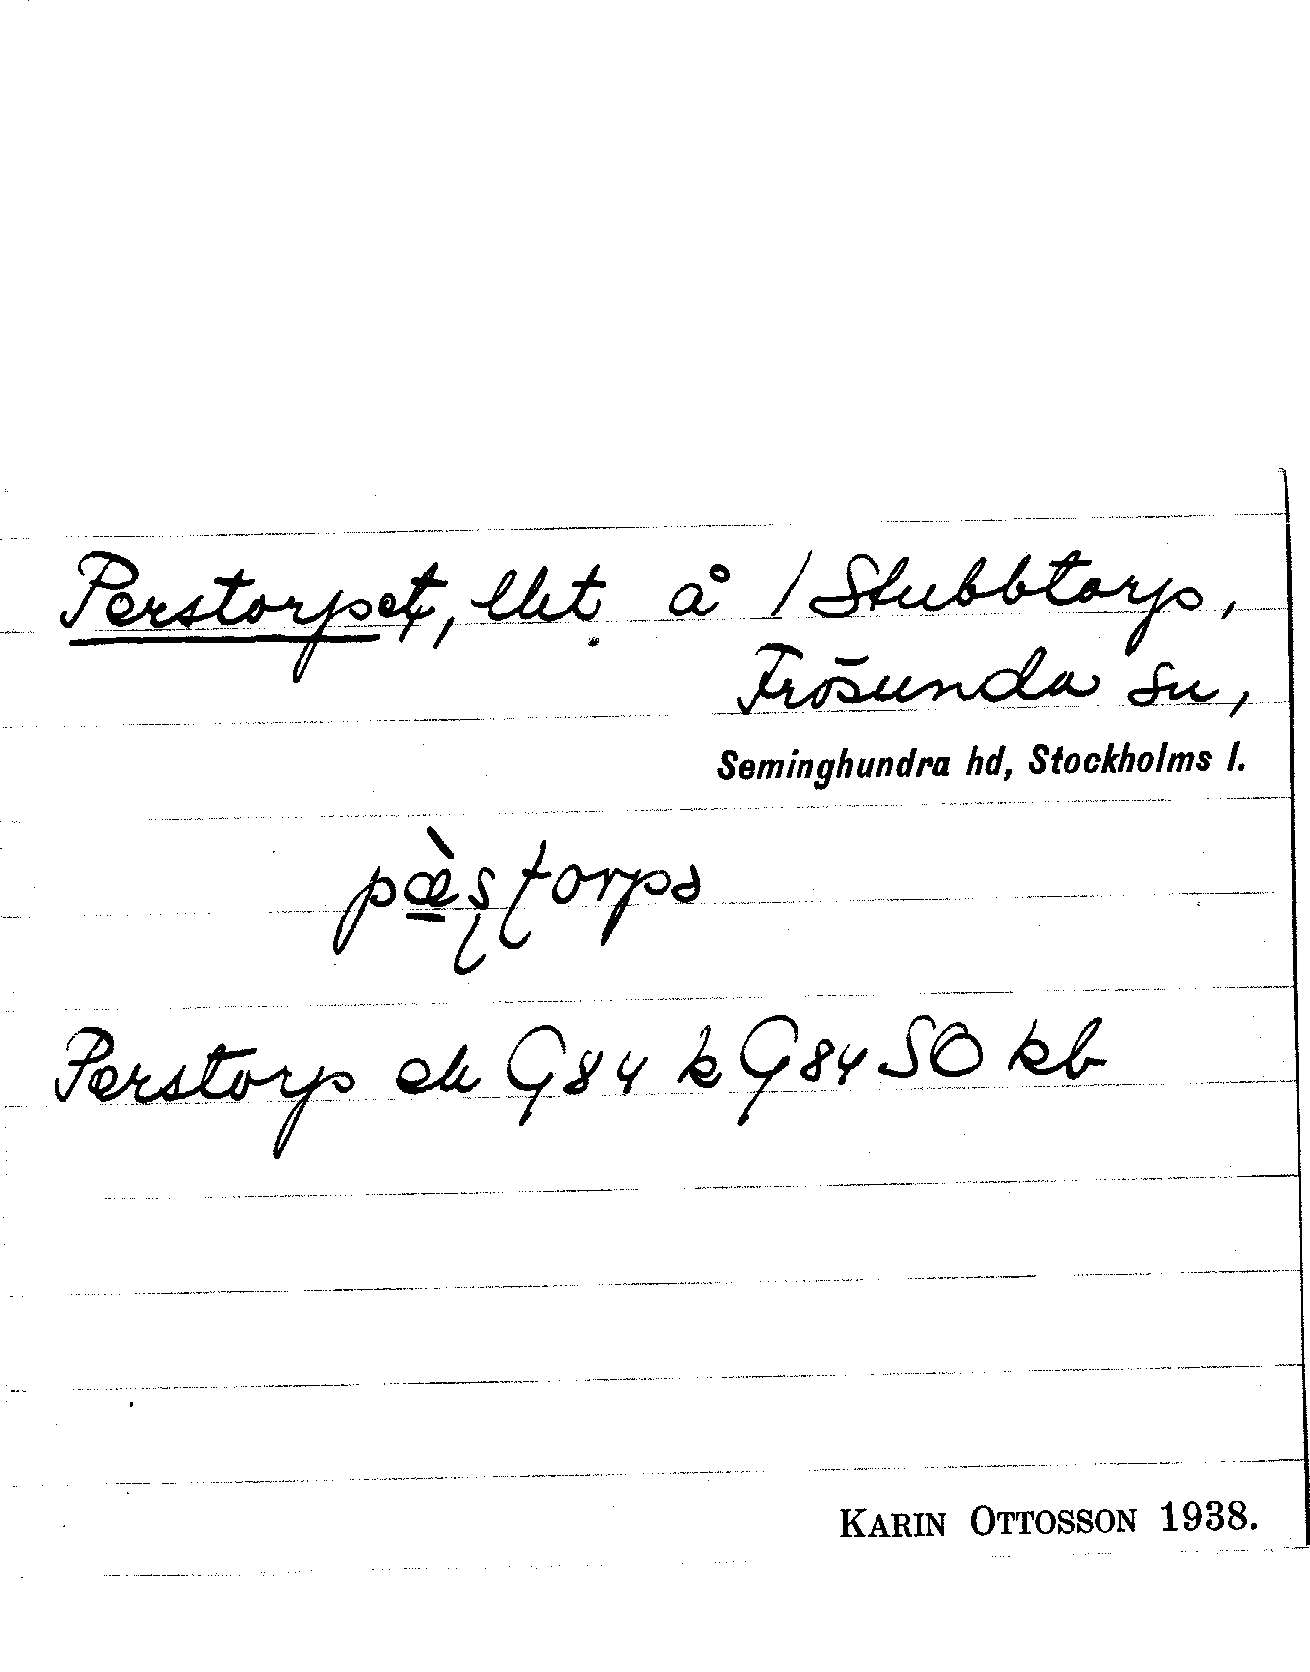 Perstorpet, lht å / Stubbtorp,
Frösunda sn,
Seminghundra hd, Stockholms l.
pæ̀ştorpə
Perstorp ek G84 k G84 SO kb
KARIN OTTOSSON 1938.